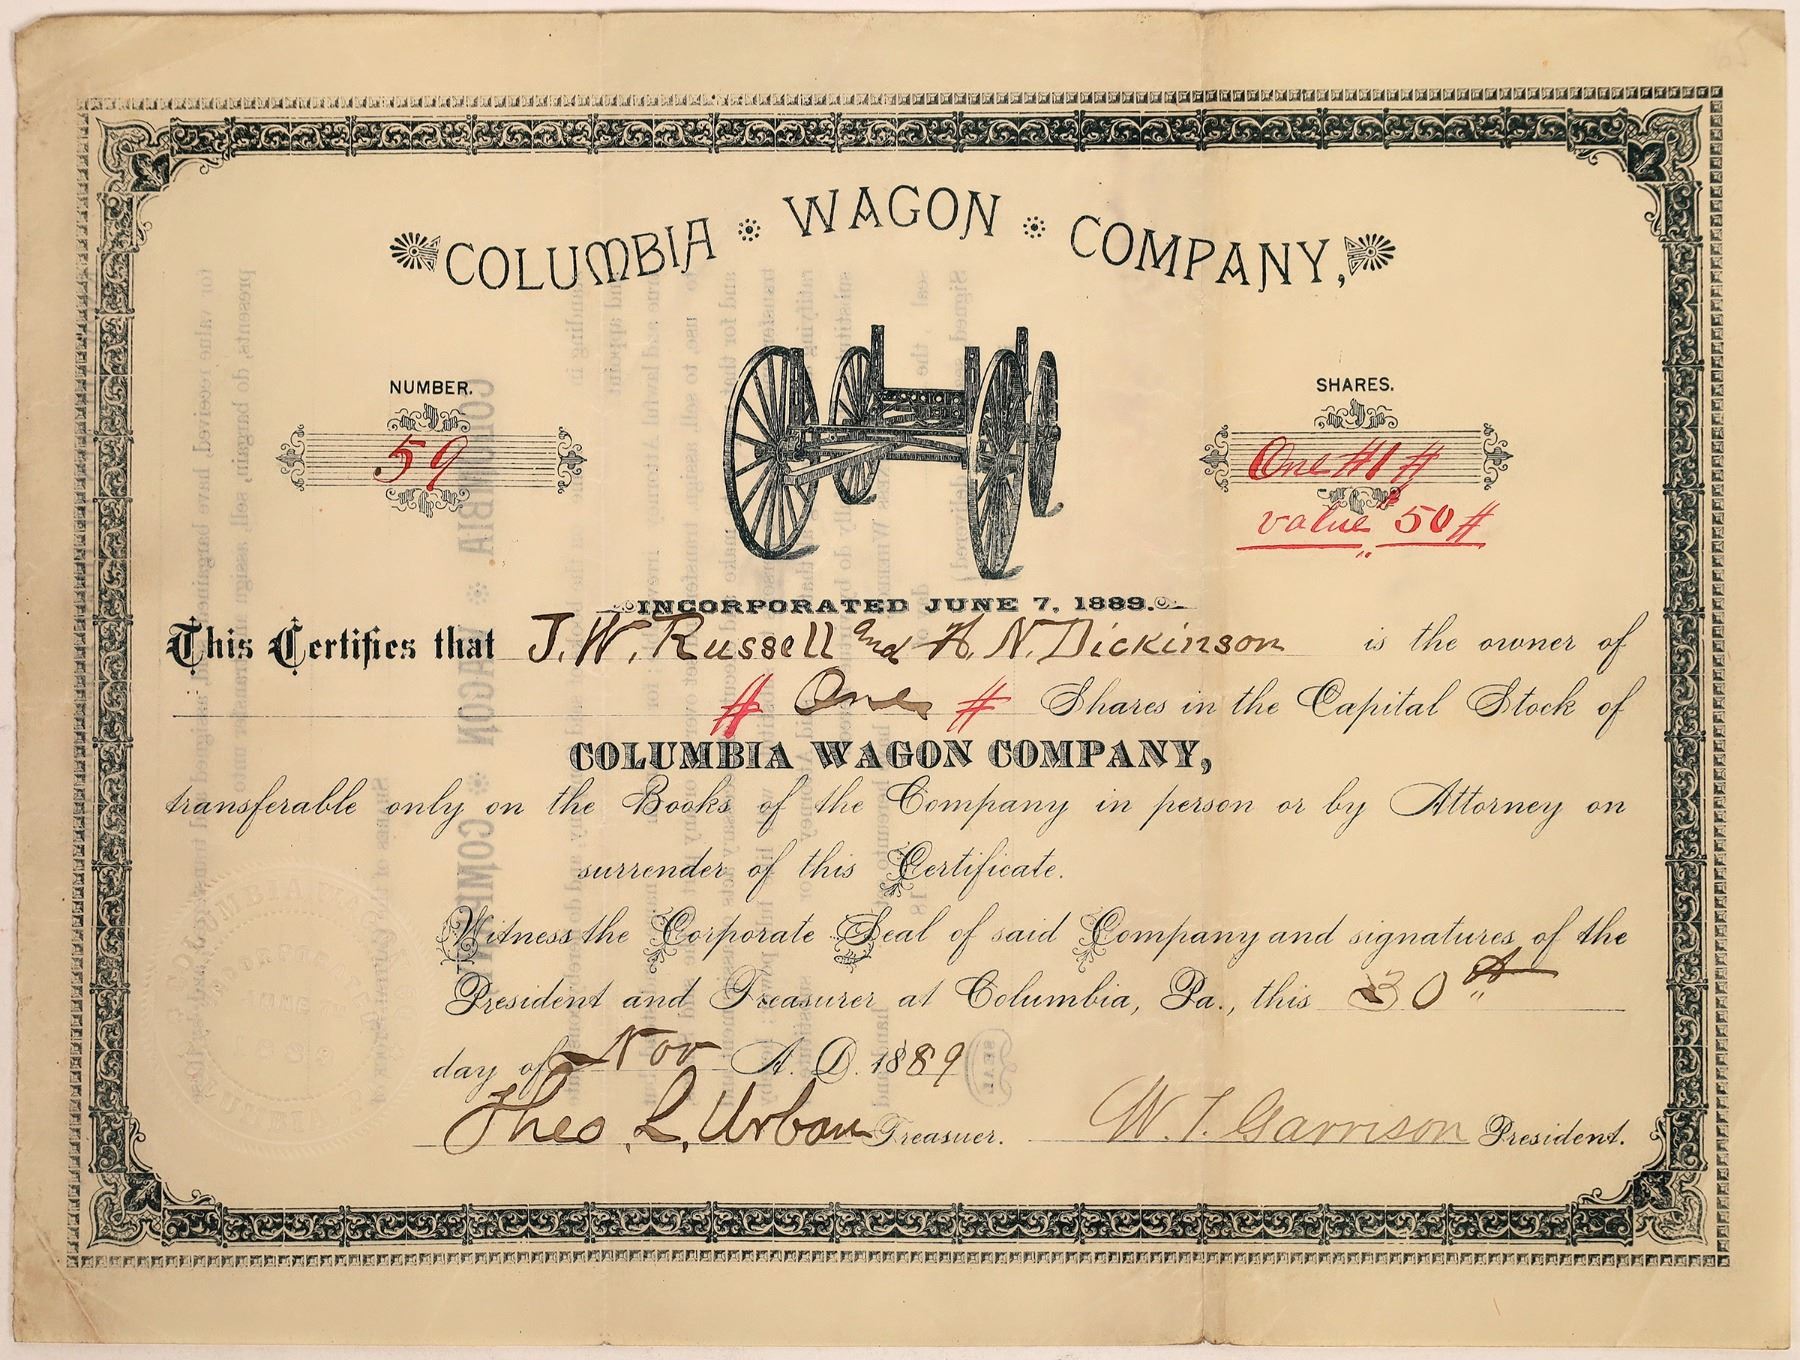 COLUMBIA WAGON COMPANY,
NUMBER.
59
SHARES.
One #1#
value $50#
INCORPORATED JUNE 7, 1889.
This Certifies that J. W. Russell and H. N. Dickinson is the owner of
# One # Shares in the Capital Stock of
COLUMBIA WAGON COMPANY,
transferable only on the Books of the Company in person or by Attorney on
surrender of this Certificate.
Witness the Corporate Seal of said Company and signatures of the
President and Treasurer at Columbia, Pa., this 30th
day of Nov A. D. 1889
Theo L. Urban Treasuer. W. T. Garrison President.